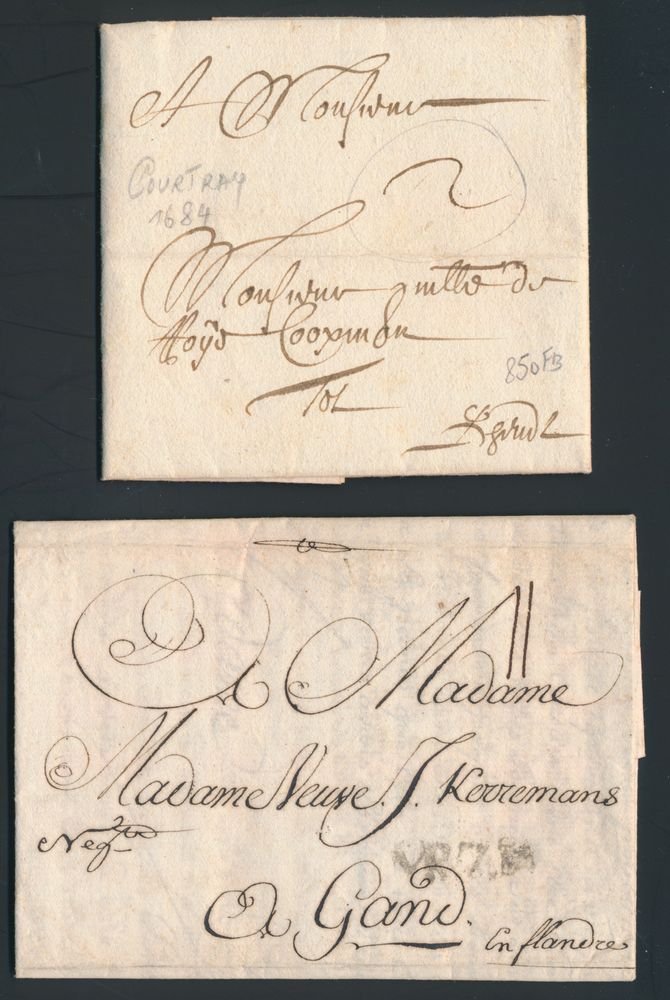 A Monsieur
2
COURTRAY
1684
Monsieur guille de
Coopman
850 FB
Tot
Ghendt
II
A Madame
Madame Veuve J. Korremans
Neg.te
A Gand.
En flandre